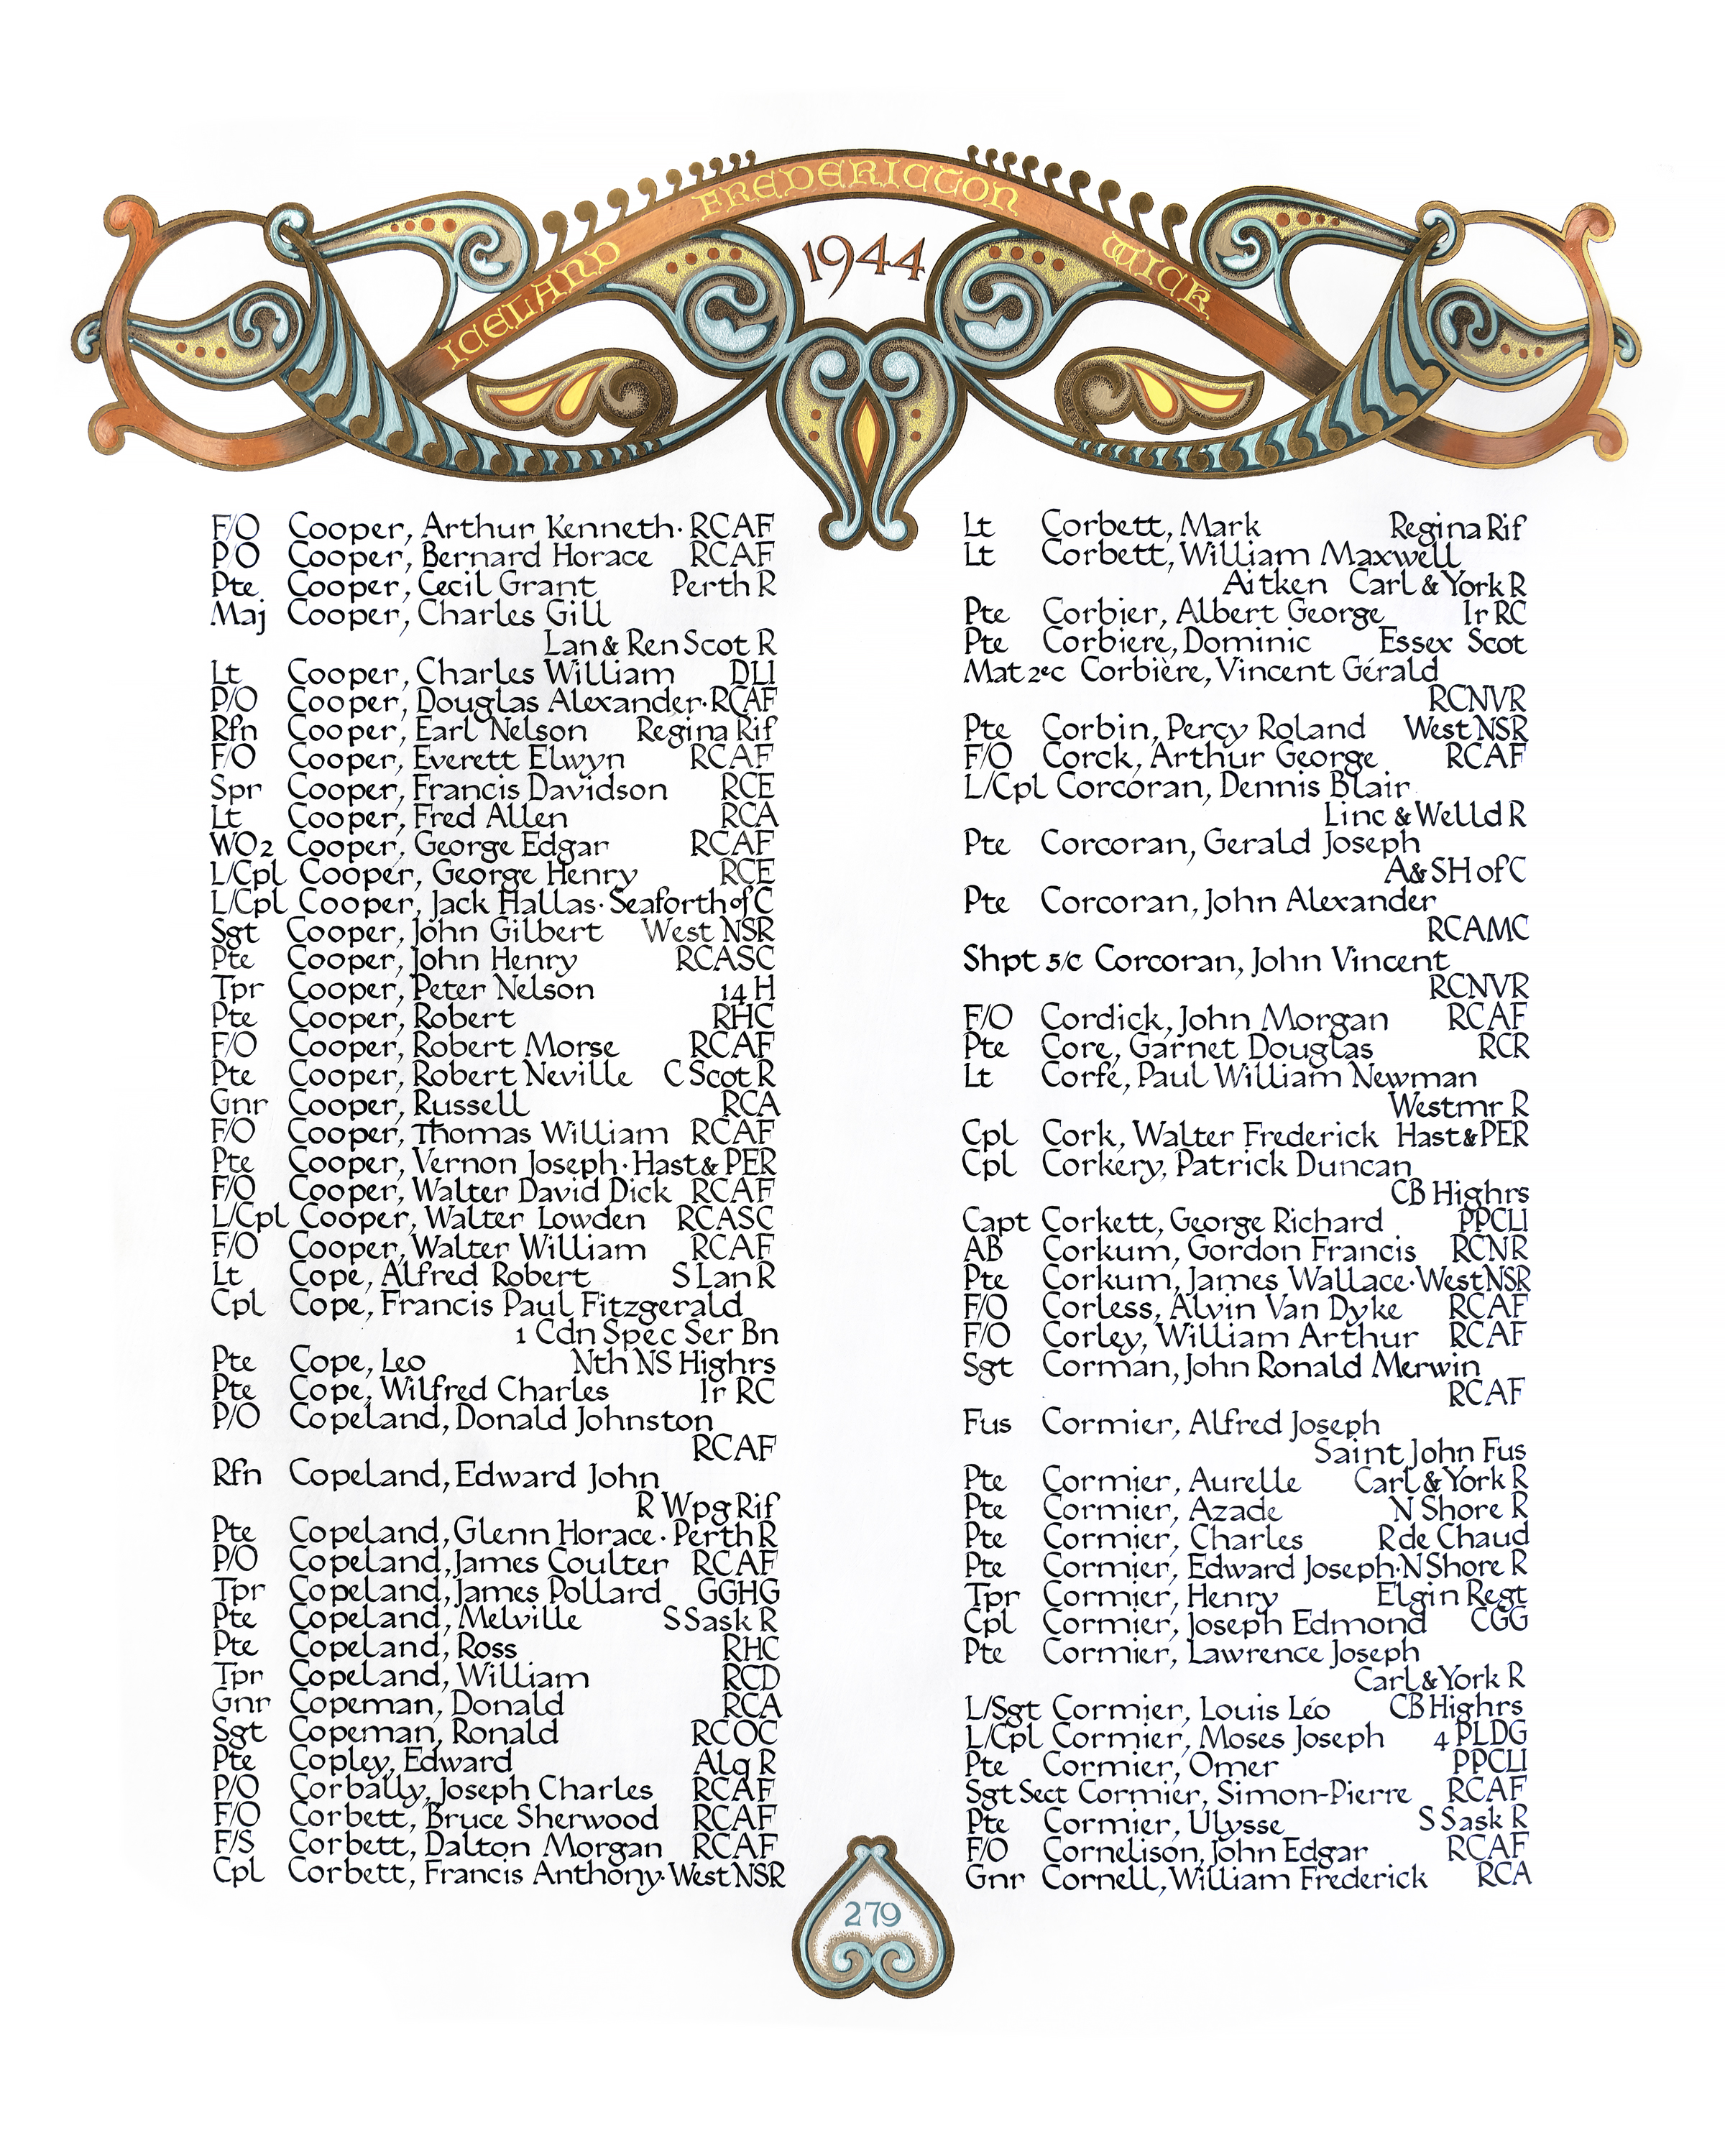 ICELAND FREDERICTON WICK
1944
F/O Cooper, Arthur Kenneth · RCAF
P/O Cooper, Bernard Horace RCAF
Pte Cooper, Cecil Grant Perth R
Maj Cooper, Charles Gill
Lan & Ren Scot R
Lt Cooper, Charles William DLI
P/O Cooper, Douglas Alexander · RCAF
Rfn Cooper, Earl Nelson Regina Rif
F/O Cooper, Everett Elwyn RCAF
Spr Cooper, Francis Davidson RCE
Lt Cooper, Fred Allen RCA
WO2 Cooper, George Edgar RCAF
L/Cpl Cooper, George Henry RCE
L/Cpl Cooper, Jack Hallas · Seaforth of C
Sgt Cooper, John Gilbert West NSR
Pte Cooper, John Henry RCASC
Tpr Cooper, Peter Nelson 14 H
Pte Cooper, Robert RHC
F/O Cooper, Robert Morse RCAF
Pte Cooper, Robert Neville C Scot R
Gnr Cooper, Russell RCA
F/O Cooper, Thomas William RCAF
Pte Cooper, Vernon Joseph · Hast & PER
F/O Cooper, Walter David Dick RCAF
L/Cpl Cooper, Walter Lowden RCASC
F/O Cooper, Walter William RCAF
Lt Cope, Alfred Robert S Lan R
Cpl Cope, Francis Paul Fitzgerald
1 Cdn Spec Ser Bn
Pte Cope, Leo Nth NS Highrs
Pte Cope, Wilfred Charles Ir RC
P/O Copeland, Donald Johnston
RCAF
Rfn Copeland, Edward John
R Wpg Rif
Pte Copeland, Glenn Horace · Perth R
P/O Copeland, James Coulter RCAF
Tpr Copeland, James Pollard GGHG
Pte Copeland, Melville S Sask R
Pte Copeland, Ross RHC
Tpr Copeland, William RCD
Gnr Copeman, Donald RCA
Sgt Copeman, Ronald RCOC
Pte Copley, Edward Alq R
P/O Corbally, Joseph Charles RCAF
F/O Corbett, Bruce Sherwood RCAF
F/S Corbett, Dalton Morgan RCAF
Cpl Corbett, Francis Anthony · West NSR
Lt Corbett, Mark Regina Rif
Lt Corbett, William Maxwell
Aitken Carl & York R
Pte Corbier, Albert George Ir RC
Pte Corbiere, Dominic Essex Scot
Mat 2ec Corbière, Vincent Gérald
RCNVR
Pte Corbin, Percy Roland West NSR
F/O Corck, Arthur George RCAF
L/Cpl Corcoran, Dennis Blair
Linc & Welld R
Pte Corcoran, Gerald Joseph
A & SH of C
Pte Corcoran, John Alexander
RCAMC
Shpt 5/c Corcoran, John Vincent
RCNVR
F/O Cordick, John Morgan RCAF
Pte Core, Garnet Douglas RCR
Lt Corfe, Paul William Newman
Westmr R
Cpl Cork, Walter Frederick Hast & PER
Cpl Corkery, Patrick Duncan
CB Highrs
Capt Corkett, George Richard PPCLI
AB Corkum, Gordon Francis RCNR
Pte Corkum, James Wallace · West NSR
F/O Corless, Alvin Van Dyke RCAF
F/O Corley, William Arthur RCAF
Sgt Corman, John Ronald Merwin
RCAF
Fus Cormier, Alfred Joseph
Saint John Fus
Pte Cormier, Aurelle Carl & York R
Pte Cormier, Azade N Shore R
Pte Cormier, Charles R de Chaud
Pte Cormier, Edward Joseph · N Shore R
Tpr Cormier, Henry Elgin Regt
Cpl Cormier, Joseph Edmond CGG
Pte Cormier, Lawrence Joseph
Carl & York R
L/Sgt Cormier, Louis Léo CB Highrs
L/Cpl Cormier, Moses Joseph 4 PLDG
Pte Cormier, Omer PPCLI
Sgt Sect Cormier, Simon-Pierre RCAF
Pte Cormier, Ulysse S Sask R
F/O Cornelison, John Edgar RCAF
Gnr Cornell, William Frederick RCA
279